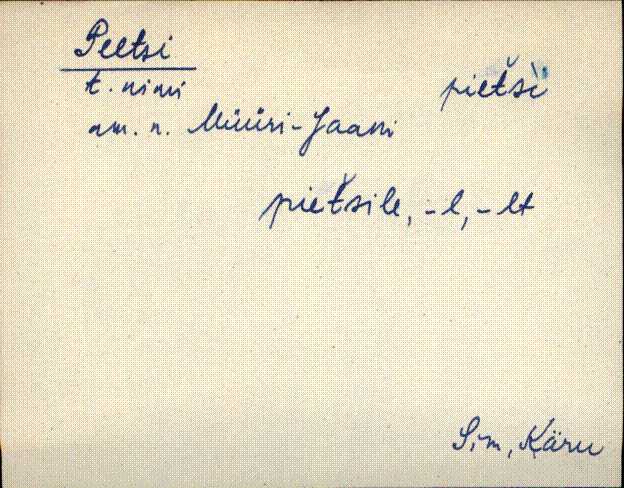 Peetsi
t. nimi pietši
am. n. Müüri-Jaani
pietšile, -l, -lt
Sim, Käru